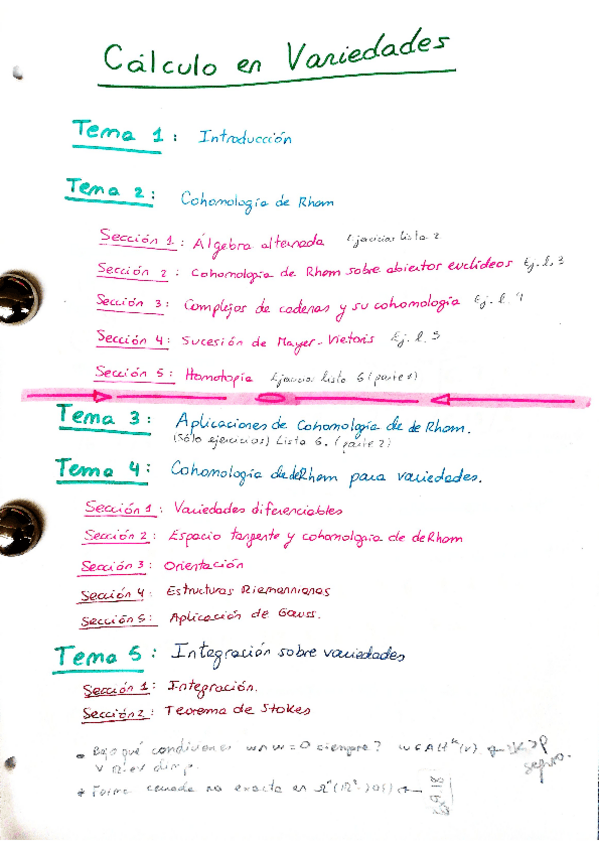 Cálculo en Variedades
Tema 1: Introducción
Tema 2: Cohomología de Rham
Sección 1: Álgebra alternada Ejercicios lista 2
Sección 2: Cohomología de Rham sobre abiertos euclídeos Ej. l. 3
Sección 3: Complejos de cadenas y su cohomología Ej. l. 4
Sección 4: Sucesión de Mayer-Vietoris Ej. l. 5
Sección 5: Homotopía Ejercicios lista 6 (parte 1)
Tema 3: Aplicaciones de Cohomología de de Rham.
(Sólo ejercicios) Lista 6. (parte 2)
Tema 4: Cohomología de deRham para variedades.
Sección 1: Variedades diferenciables
Sección 2: Espacio tangente y cohomología de deRham
Sección 3: Orientación
Sección 4: Estructuras Riemannianas
Sección 5: Aplicación de Gauss.
Tema 5: Integración sobre variedades
Sección 1: Integración.
Sección 2: Teorema de Stokes
Bajo qué condiciones w∧w=0 siempre?
V dim p. seguro.
Forma cerrada no exacta en